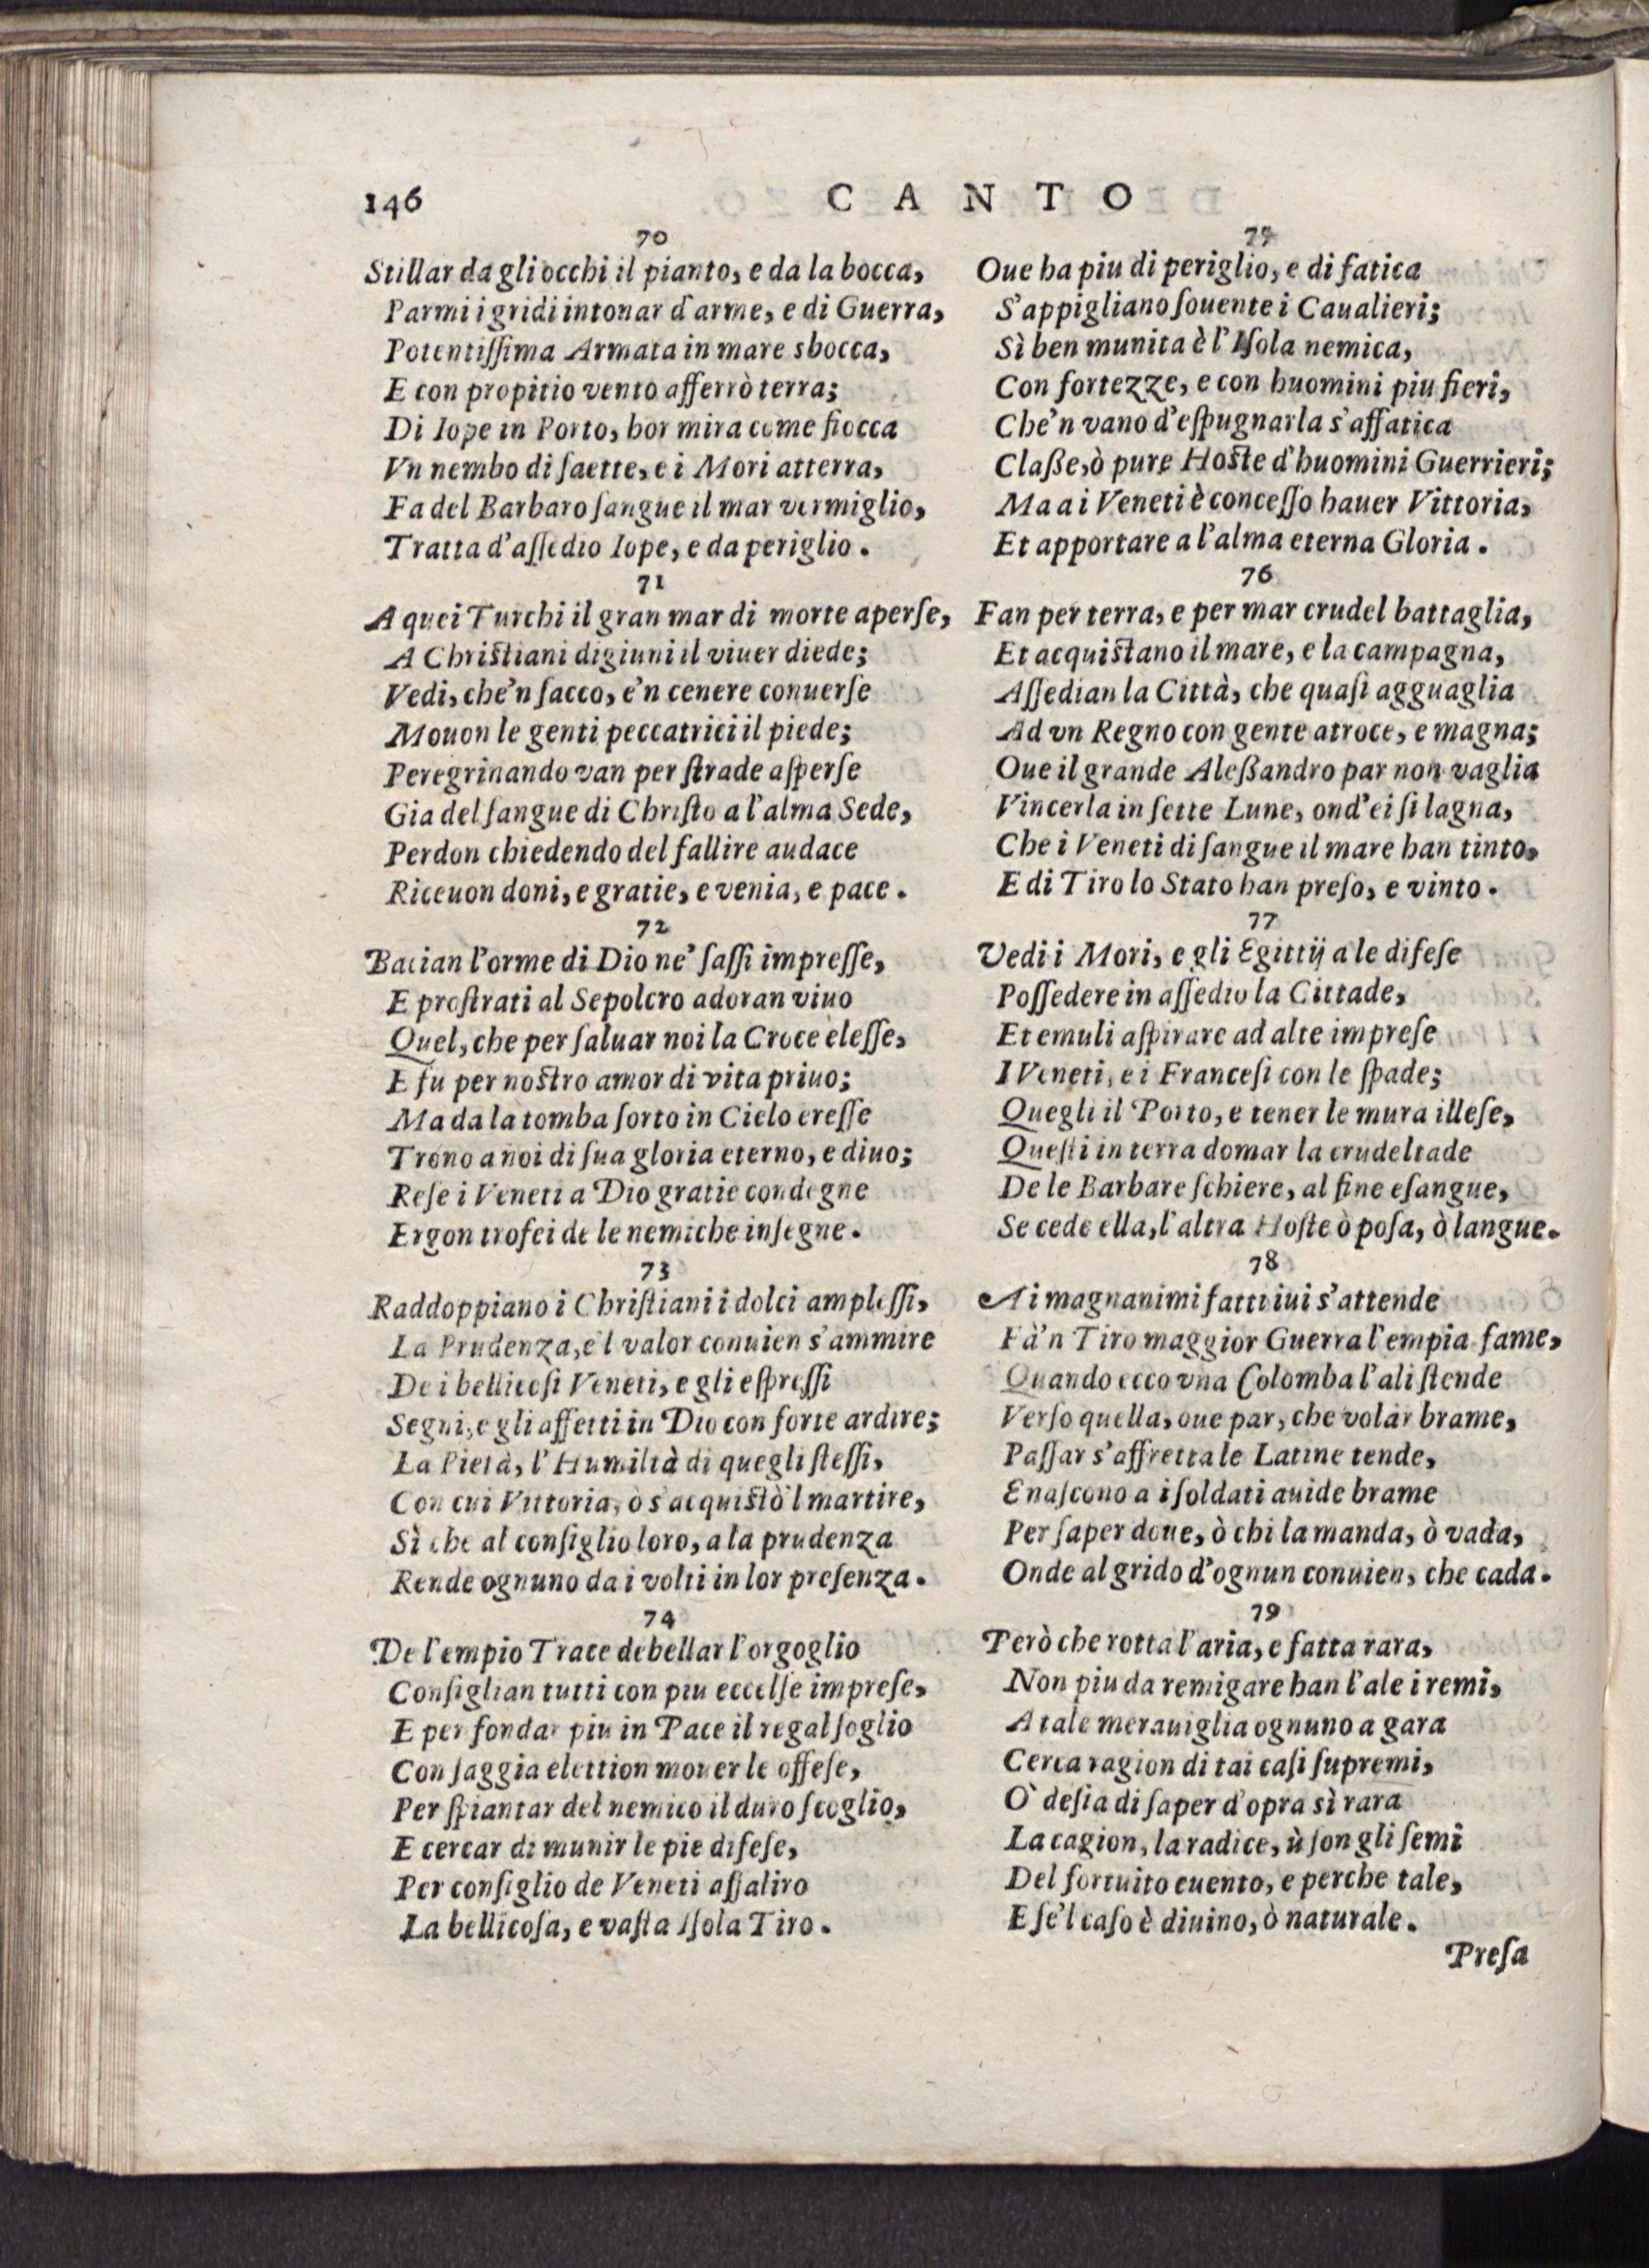 146
CANTO
70
Stillar da gli occhi il pianto, e da la bocca,
Parmi i gridi intonar d'arme, e di Guerra,
Potentiſſima Armata in mare sbocca,
E con propitio vento afferrò terra;
Di Iope in Porto, hor mira come fiocca
Vn nembo di ſaette, e i Mori atterra,
Fa del Barbaro ſangue il mar vermiglio,
Tratta d'aſſedio Iope, e da periglio.
71
A quei Turchi il gran mar di morte aperſe,
A Chriſtiani digiuni il viuer diede;
Vedi, che'n ſacco, e'n cenere conuerſe
Mouon le genti peccatrici il piede;
Peregrinando van per ſtrade aſperſe
Gia del ſangue di Chriſto a l'alma Sede,
Perdon chiedendo del fallire audace
Riceuon doni, e gratie, e venia, e pace.
72
Bacian l'orme di Dio ne' ſaſſi impreſſe,
E proſtrati al Sepolcro adoran viuo
Quel, che per ſaluar noi la Croce eleſſe,
E fu per noſtro amor di vita priuo;
Ma da la tomba ſorto in Cielo ereſſe
Trono a noi di ſua gloria eterno, e diuo;
Reſe i Veneti a Dio gratie condegne
Ergon trofei de le nemiche inſegne.
73
Raddoppiano i Chriſtiani i dolci ampleſſi,
La Prudenza, e'l valor conuien s'ammire
De i bellicoſi Veneti, e gli eſpreſſi
Segni, e gli affetti in Dio con forte ardire;
La Pietà, l'Humiltà di quegli ſteſſi,
Con cui Vittoria, ò s'acquiſtò 'l martire,
Sì che al conſiglio loro, a la prudenza
Rende ognuno da i volti in lor preſenza.
74
De l'empio Trace debellar l'orgoglio
Conſiglian tutti con piu eccelſe impreſe,
E per fondar piu in Pace il regal ſoglio
Con ſaggia elettion mouer le offeſe,
Per ſpiantar del nemico il duro ſcoglio,
E cercar di munir le pie difeſe,
Per conſiglio de Veneti aſſaliro
La bellicoſa, e vaſta Iſola Tiro.
75
Oue ha piu di periglio, e di fatica
S'appigliano ſouente i Caualieri;
Sì ben munita è l'Iſola nemica,
Con fortezze, e con huomini piu fieri,
Che'n vano d'eſpugnarla s'affatica
Claße, ò pure Hoſte d'huomini Guerrieri;
Ma a i Veneti è conceſſo hauer Vittoria,
Et apportare a l'alma eterna Gloria.
76
Fan per terra, e per mar crudel battaglia,
Et acquiſtano il mare, e la campagna,
Aſſedian la Città, che quaſi agguaglia
Ad vn Regno con gente atroce, e magna;
Oue il grande Aleßandro par non vaglia
Vincerla in ſette Lune, ond'ei ſi lagna,
Che i Veneti di ſangue il mare han tinto,
E di Tiro lo Stato han preſo, e vinto.
77
Vedi i Mori, e gli Egittij a le difeſe
Poſſedere in aſſedio la Cittade,
Et emuli aſpirare ad alte impreſe
I Veneti, e i Franceſi con le ſpade;
Quegli il Porto, e tener le mura illeſe,
Queſti in terra domar la crudeltade
De le Barbare ſchiere, al fine eſangue,
Se cede ella, l'altra Hoſte ò poſa, ò langue.
78
A i magnanimi fatti iui s'attende
Fà'n Tiro maggior Guerra l'empia fame,
Quando ecco vna Colomba l'ali ſtende
Verſo quella, oue par, che volar brame,
Paſſar s'affretta le Latine tende,
E naſcono a i ſoldati auide brame
Per ſaper doue, ò chi la manda, ò vada,
Onde al grido d'ognun conuien, che cada.
79
Però che rotta l'aria, e fatta rara,
Non piu da remigare han l'ale i remi,
A tale merauiglia ognuno a gara
Cerca ragion di tai caſi ſupremi,
O' deſia di ſaper d'opra sì rara
La cagion, la radice, ù ſon gli ſemi
Del fortuito euento, e perche tale,
E ſe'l caſo è diuino, ò naturale.
Preſa